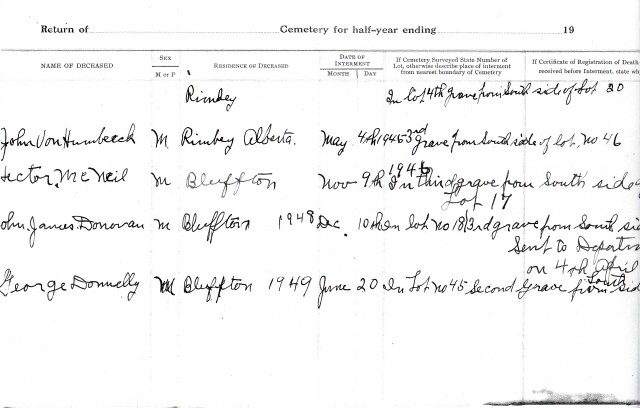 Return of Cemetery for half-year ending 19
NAME OF DECEASED
SEX
M or F
RESIDENCE OF DECEASED
DATE OF INTERMENT
MONTH DAY
If Cemetery Surveyed State Number of
Lot, otherwise describe place of interment
from nearest boundary of Cemetery
If Certificate of Registration of Death
received before Interment, state wh
Rimbey In lot 4th grave from South side of Lot 20
John Von Humbeeck M Rimbey Alberta. May 4th 1945 3rd grave from South side of lot No 46
ector McNeil M Bluffton Nov 9th 1946 In third grave from South side
Lot 17
ohn James Donovan M Bluffton 1948 Dec. 10th In lot no 18 3rd grave from South sid
Sent to Departm
on 4th April
George Donnelly M Bluffton 1949 June 20 In Lot no 45 Second Grave from South sid